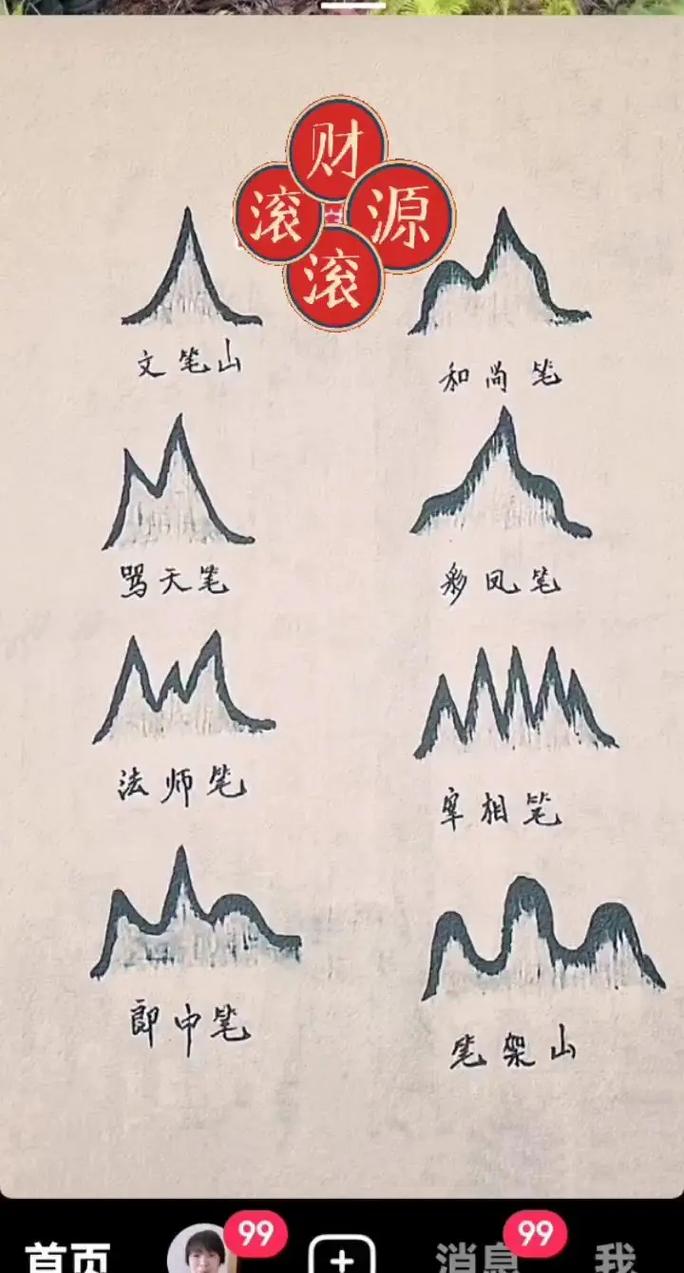 财
滚 源
滚
文笔山
和尚笔
骂天笔
彩凤笔
法师笔
宰相笔
郎中笔
笔架山
首页
99
消息
99
我